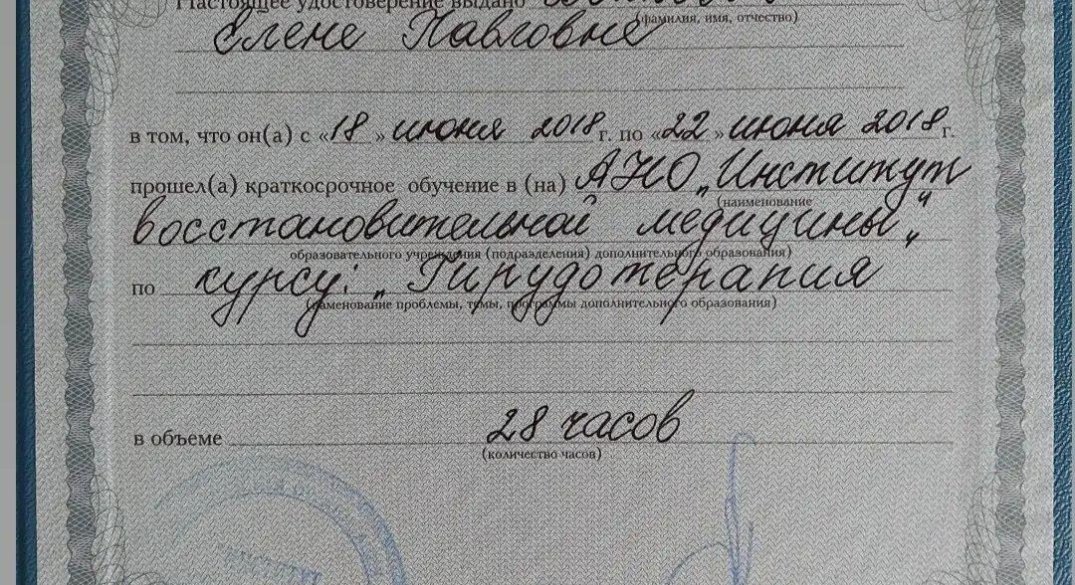 Настоящее удостоверение выдано
(фамилия, имя, отчество)
Елене Павловне
в том, что он(а) с «18» июня 2018 г. по «22» июня 2018 г.
прошел(а) краткосрочное обучение в (на) АНО „Институт
(наименование
восстановительной медицины"
образовательного учреждения (подразделения) дополнительного образования)
по курсу: „Гирудотерапия
(наименование проблемы, темы, программы дополнительного образования)
в объеме 28 часов
(количество часов)